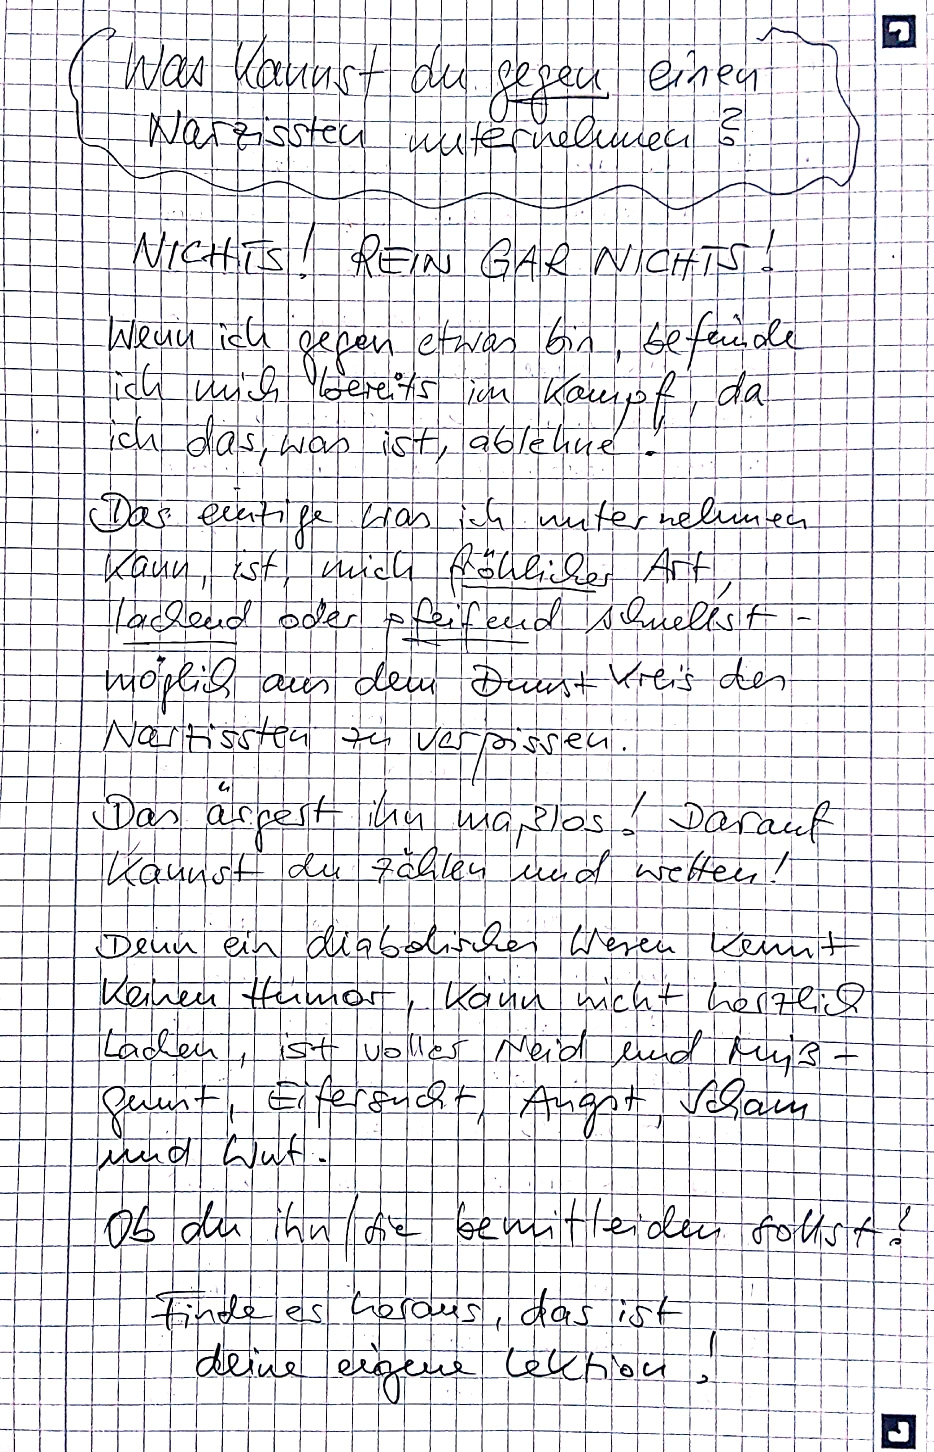 Was kannst du gegen einen
Narzissten unternehmen?
NICHTS! REIN GAR NICHTS!
Wenn ich gegen etwas bin, befinde
ich mich bereits im Kampf, da
ich das, was ist, ablehne!
Das einzige was ich unternehmen
kann, ist, mich fröhlicher Art,
lachend oder pfeifend schnellst-
möglich aus dem Dunstkreis des
Narzissten zu verpissen.
Das ärgert ihn maßlos! Darauf
kannst du zählen und wetten!
Denn ein diabolisches Wesen kennt
keinen Humor, kann nicht herzlich
lachen, ist voller Neid und Miß-
gunst, Eifersucht, Angst, Scham
und Wut.
Ob du ihn/sie bemitleiden sollst?
Finde es heraus, das ist
deine eigene Lektion!